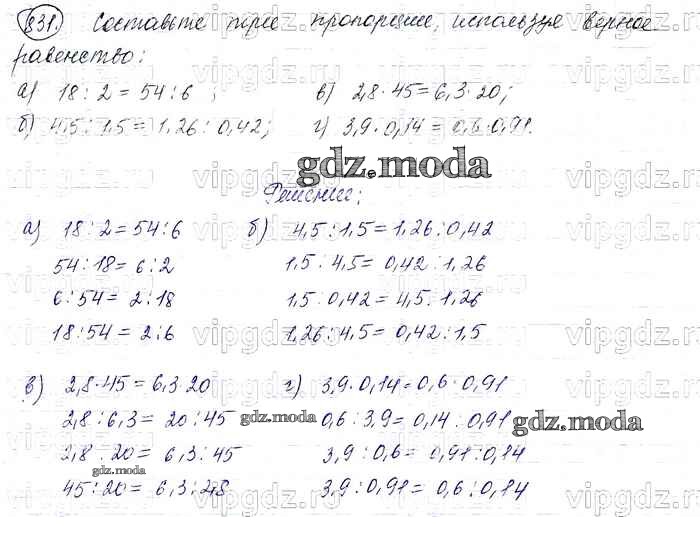 831. Составьте три пропорции, используя верное
равенство:
а) 18 : 2 = 54 : 6 ; в) 2,8 · 45 = 6,3 · 20;
б) 4,5 : 1,5 = 1,26 : 0,42; г) 3,9 · 0,14 = 0,6 · 0,91.
gdz.moda
Решение:
а) 18 : 2 = 54 : 6 б) 4,5 : 1,5 = 1,26 : 0,42
54 : 18 = 6 : 2 1,5 : 4,5 = 0,42 : 1,26
6 : 54 = 2 : 18 1,5 : 0,42 = 4,5 : 1,26
18 : 54 = 2 : 6 1,26 : 4,5 = 0,42 : 1,5
в) 2,8 · 45 = 6,3 · 20 г) 3,9 · 0,14 = 0,6 · 0,91
2,8 : 6,3 = 20 : 45 gdz.moda 0,6 : 3,9 = 0,14 : 0,91 gdz.moda
2,8 : 20 = 6,3 : 45 3,9 : 0,6 = 0,91 : 0,14
gdz.moda
45 : 20 = 6,3 : 28 3,9 : 0,91 = 0,6 : 0,14
vipgdz.ru